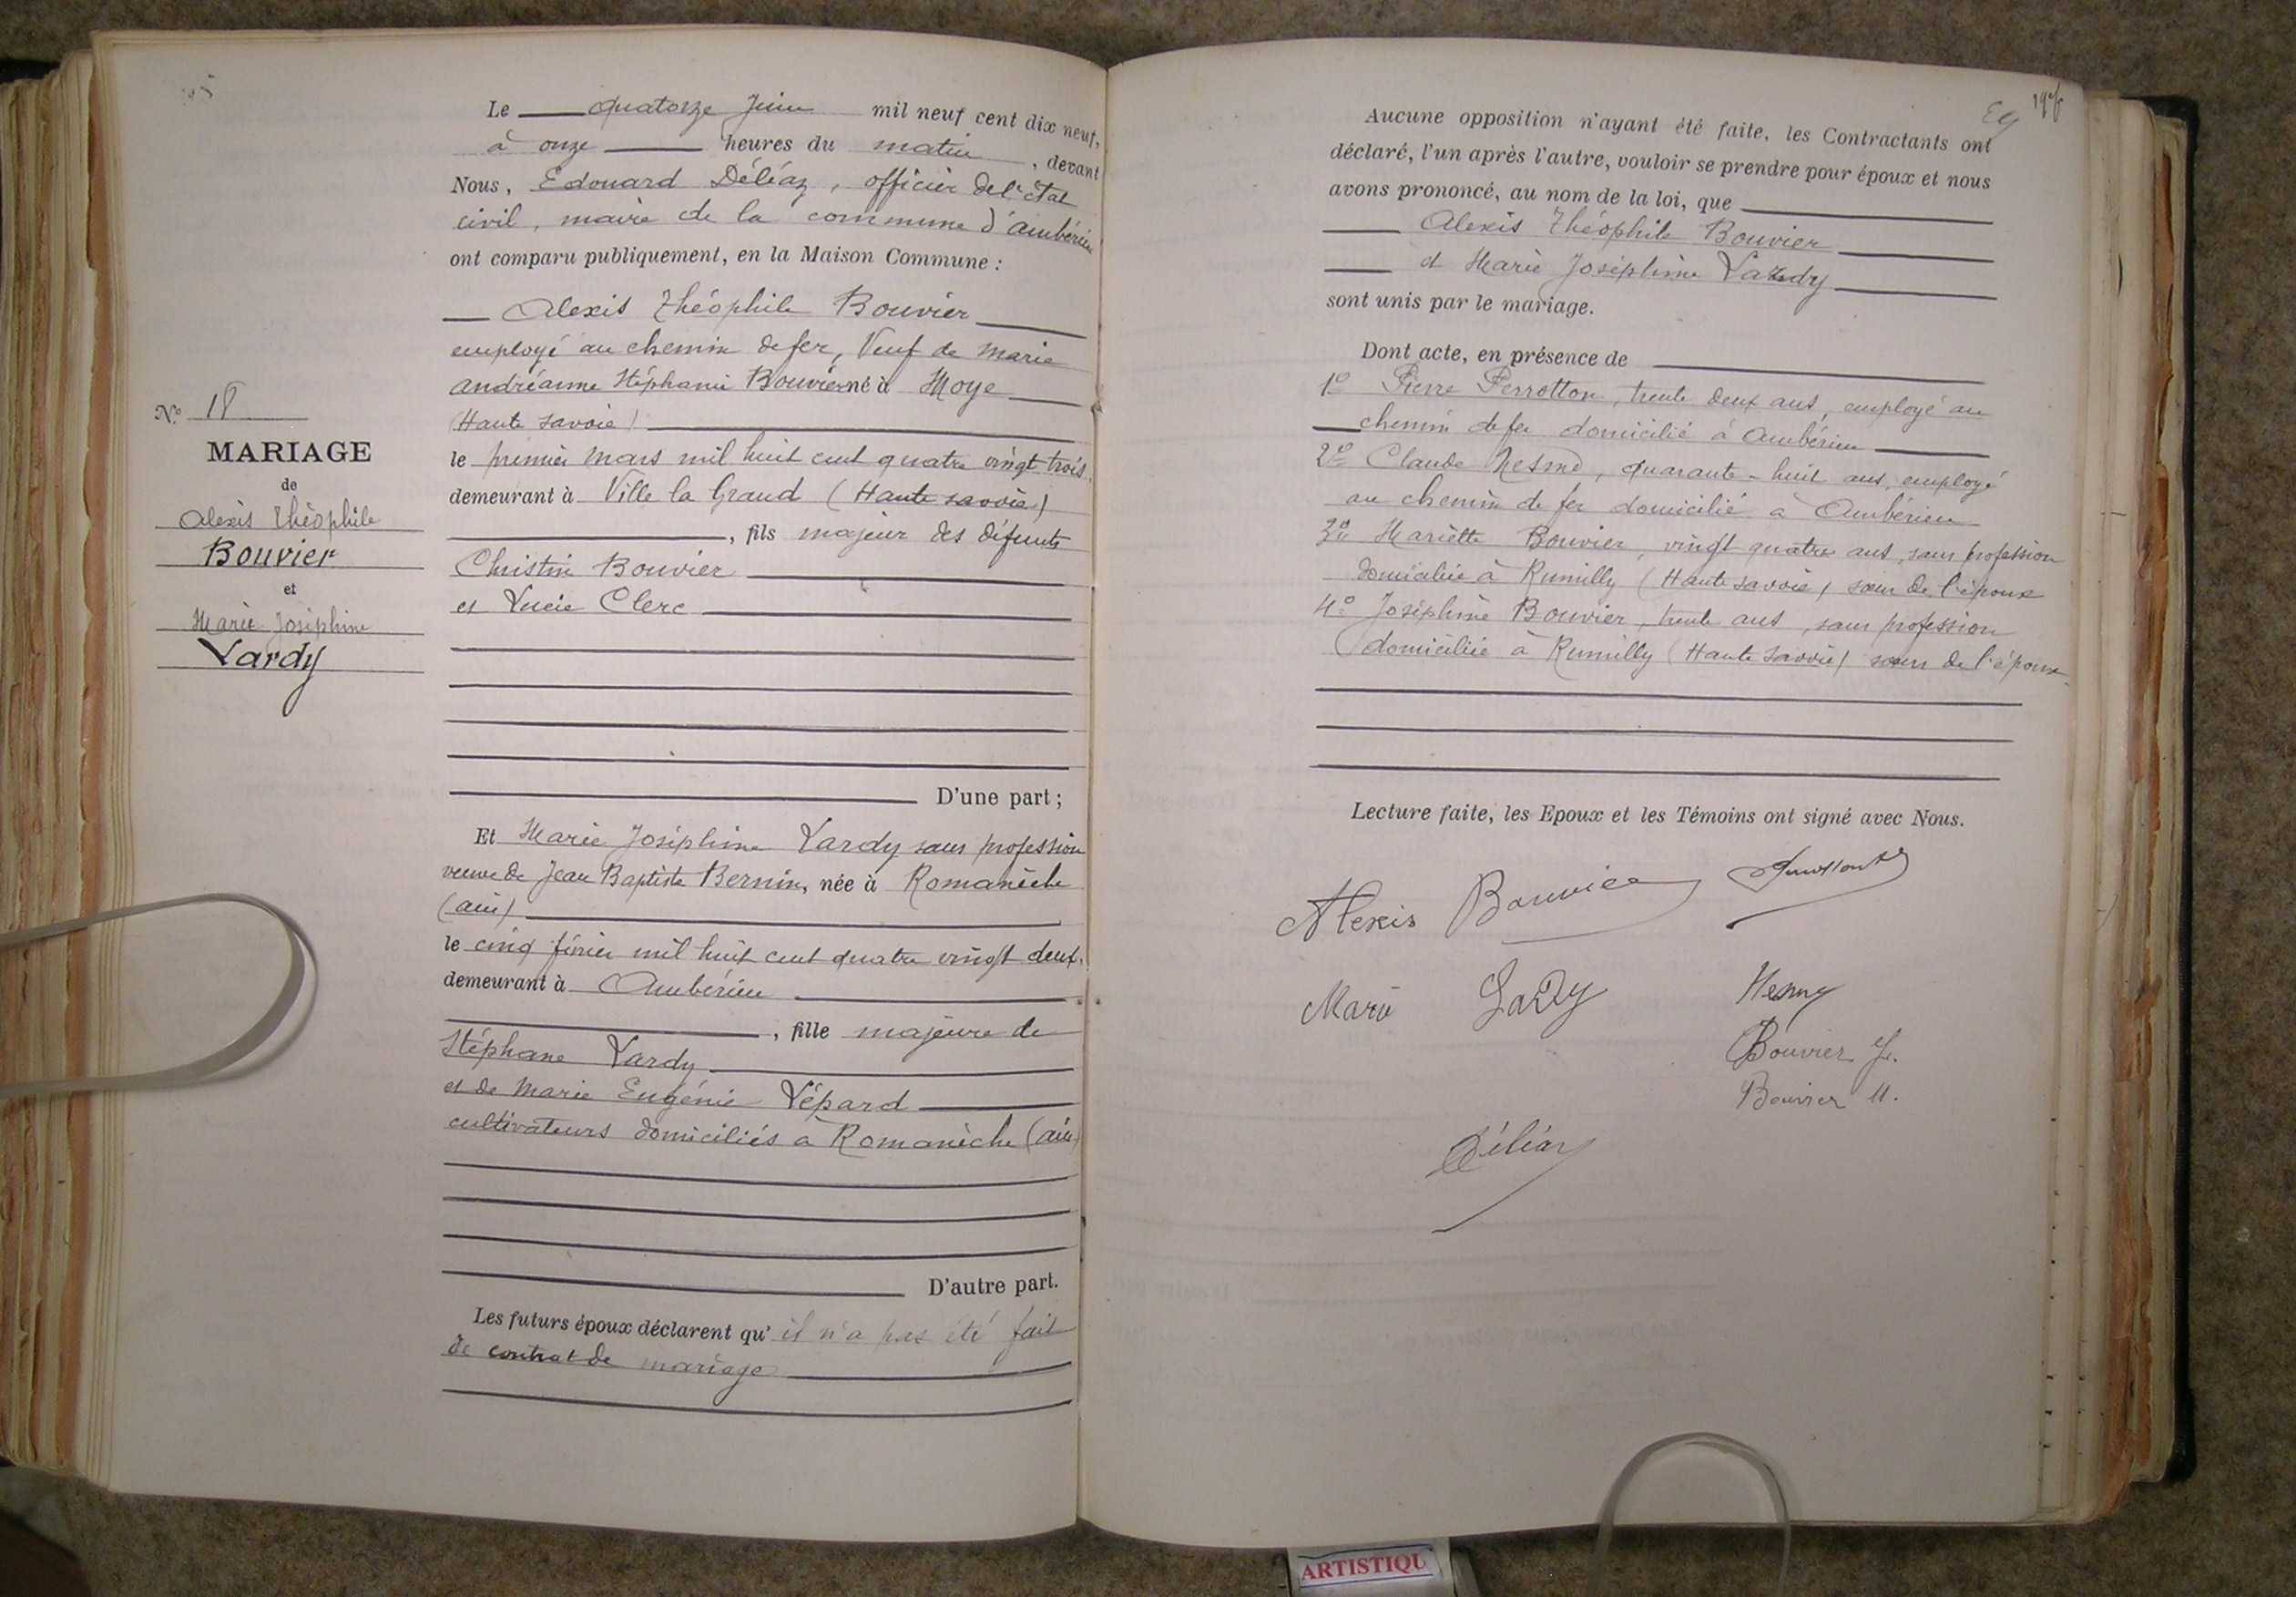 Le quatorze Juin mil neuf cent dix neuf,
à onze heures du matin, devant
Nous, Edouard Déléaz, officier de l'état
civil, maire de la commune d'Ambérieu
ont comparu publiquement, en la Maison Commune :
Alexis Théophile Bouvier
employé au chemin de fer, Veuf de Marie
andréanne Stéphanie Bouvier né à Moye
(Haute savoie)
le premier Mars mil huit cent quatre vingt trois
demeurant à Ville la Grand (Haute savoie)
, fils majeur des défunts
Christin Bouvier
et Lucie Clerc
D'une part ;
Et Marie Joséphine Lardy sans profession
veuve de Jean Baptiste Bernin, née à Romanèche
(ain)
le cinq février mil huit cent quatre vingt deux,
demeurant à Ambérieu
, fille majeure de
Stéphane Lardy
et de Marie Eugénie Lépard
cultivateurs domiciliés à Romanèche (ain)
D'autre part.
Les futurs époux déclarent qu' il n'a pas été fait
de contrat de mariage
N° 18
MARIAGE
de
Alexis Théophile
Bouvier
et
Marie Joséphine
Lardy
Aucune opposition n'ayant été faite, les Contractants ont
déclaré, l'un après l'autre, vouloir se prendre pour époux et nous
avons prononcé, au nom de la loi, que
Alexis Théophile Bouvier
et Marie Joséphine Lardy
sont unis par le mariage.
Dont acte, en présence de
1° Pierre Perrotton, trente deux ans, employé au
chemin de fer domicilié à Ambérieu
2° Claude Nesme, quarante-huit ans, employé
au chemin de fer domicilié à Ambérieu
3° Mariette Bouvier, vingt quatre ans, sans profession
domiciliée à Rumilly (Haute savoie) sœur de l'époux
4° Joséphine Bouvier, trente ans, sans profession
domiciliée à Rumilly (Haute savoie) sœur de l'époux.
Lecture faite, les Epoux et les Témoins ont signé avec Nous.
Alexis Bouvier
Marie Lardy
Nesme
Bouvier J.
Bouvier M.
Déléaz
ARTISTIQU